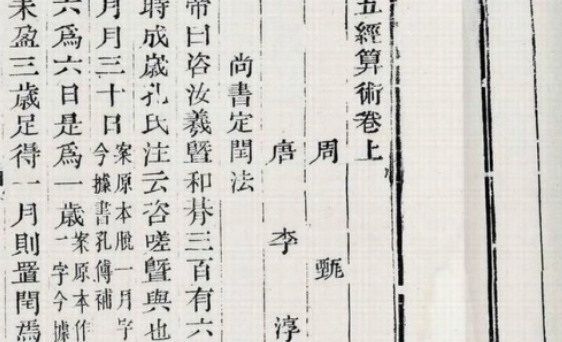 五經算術卷上
周 甄
唐 李 淳
尚書定閏法
帝曰咨汝羲暨和朞三百有六
時成歲孔氏注云咨嗟暨與也
月月三十日案原本脫一月字今據書孔傳補
六爲六日是爲一歲案原本作一字今據
未盈三歲足得一月則置閏焉